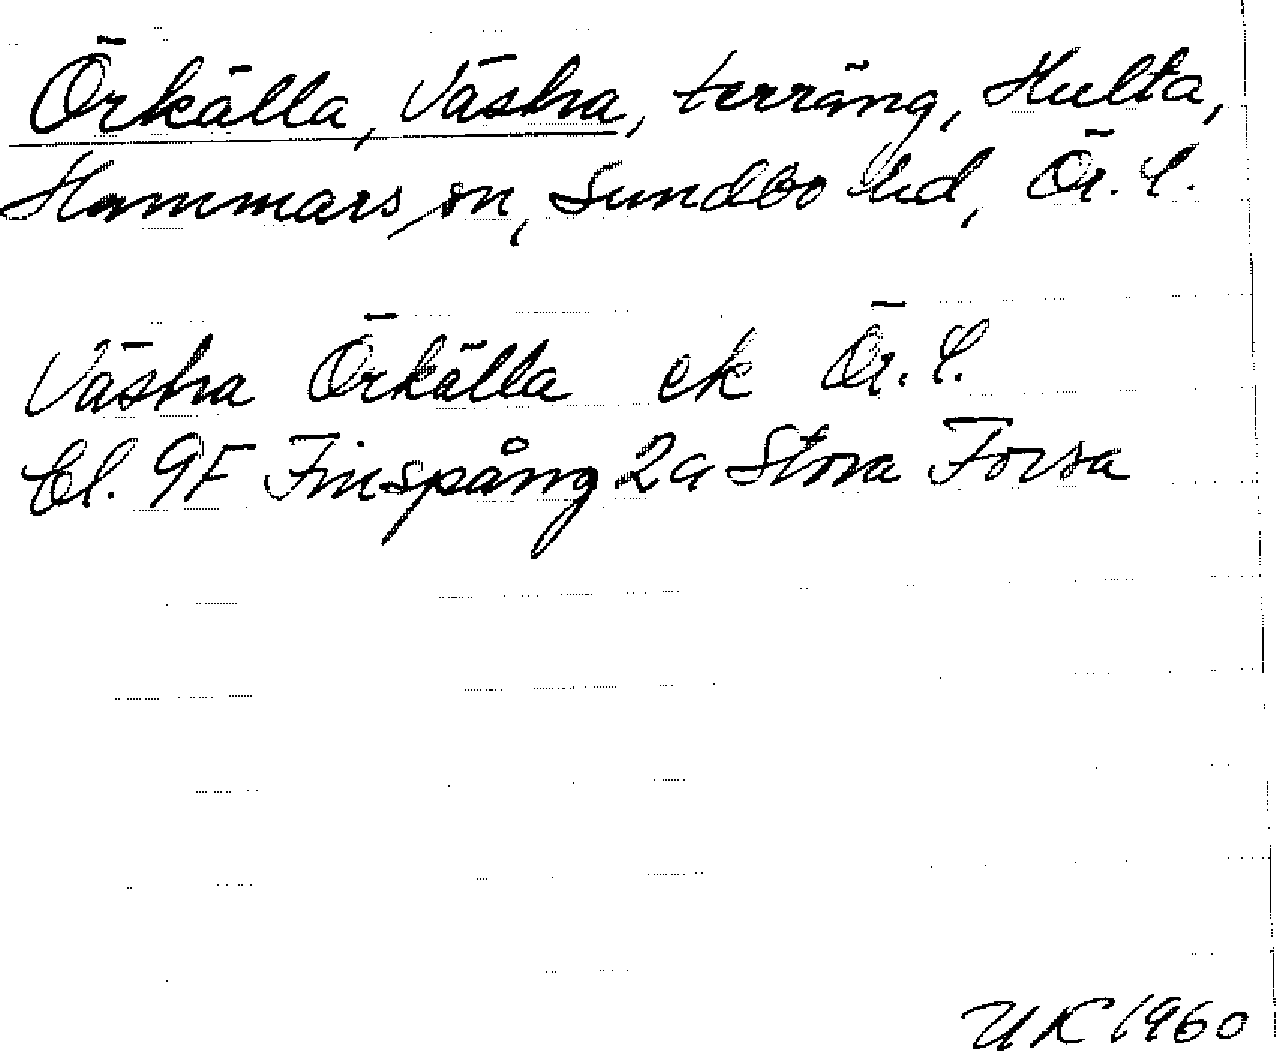 Örkälla, Västra, terräng, Hulta,
Hammars sn, Sundbo hd, Ör. l.
Västra Örkälla ek Ör. l.
bl. 9F Finspång 2a Stora Forsa
UK 1960